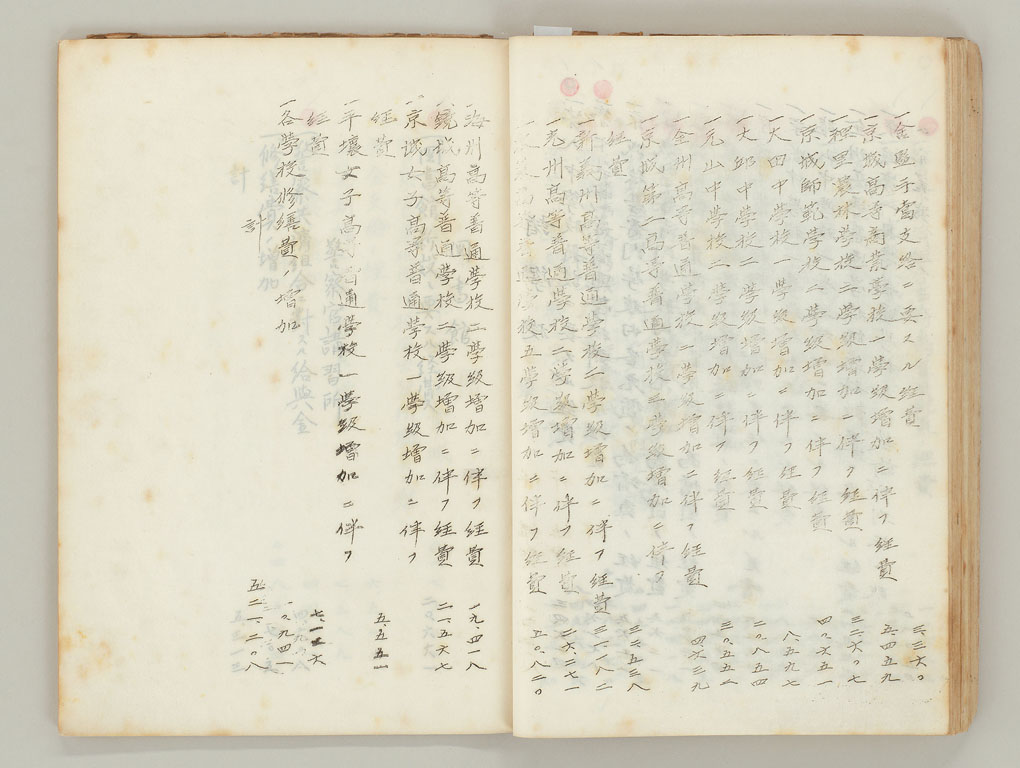 一金監手當支給ニ要スル經費 三、三六〇
一京城高等商業學校一學級增加ニ伴フ經費 五、四五九
一裡里農林學校二學級增加ニ伴フ經費 三二、六〇七
一京城師範學校二學級增加ニ伴フ經費 四〇、六五一
一大田中學校一學級增加ニ伴フ經費 八、五九七
一大邱中學校二學級增加ニ伴フ經費 二〇、八五四
一元山中學校二學級增加ニ伴フ經費 三〇、五五二
一全州高等普通學校二學級增加ニ伴フ經費 四六、二三九
一京城第二高等普通學校二學級增加ニ伴フ
經費 三二、五三八
一新義州高等普通學校二學級增加ニ伴フ經費 三一、一八二
一光州高等普通學校二學級增加ニ伴フ經費 二六、二七一
高等普通學校五學級增加ニ伴フ經費 五〇、八二〇
一海州高等普通學校二學級增加ニ伴フ經費 一九、四一八
一鏡城高等普通學校二學級增加ニ伴フ經費 二一、五六七
一京城女子高等普通學校一學級增加ニ伴フ
經費 五、五五一
一平壤女子高等普通學校一學級增加ニ伴フ
經費 七、一二六
一各學校修繕費ノ增加 一〇、九四一
計 五二一、二〇八